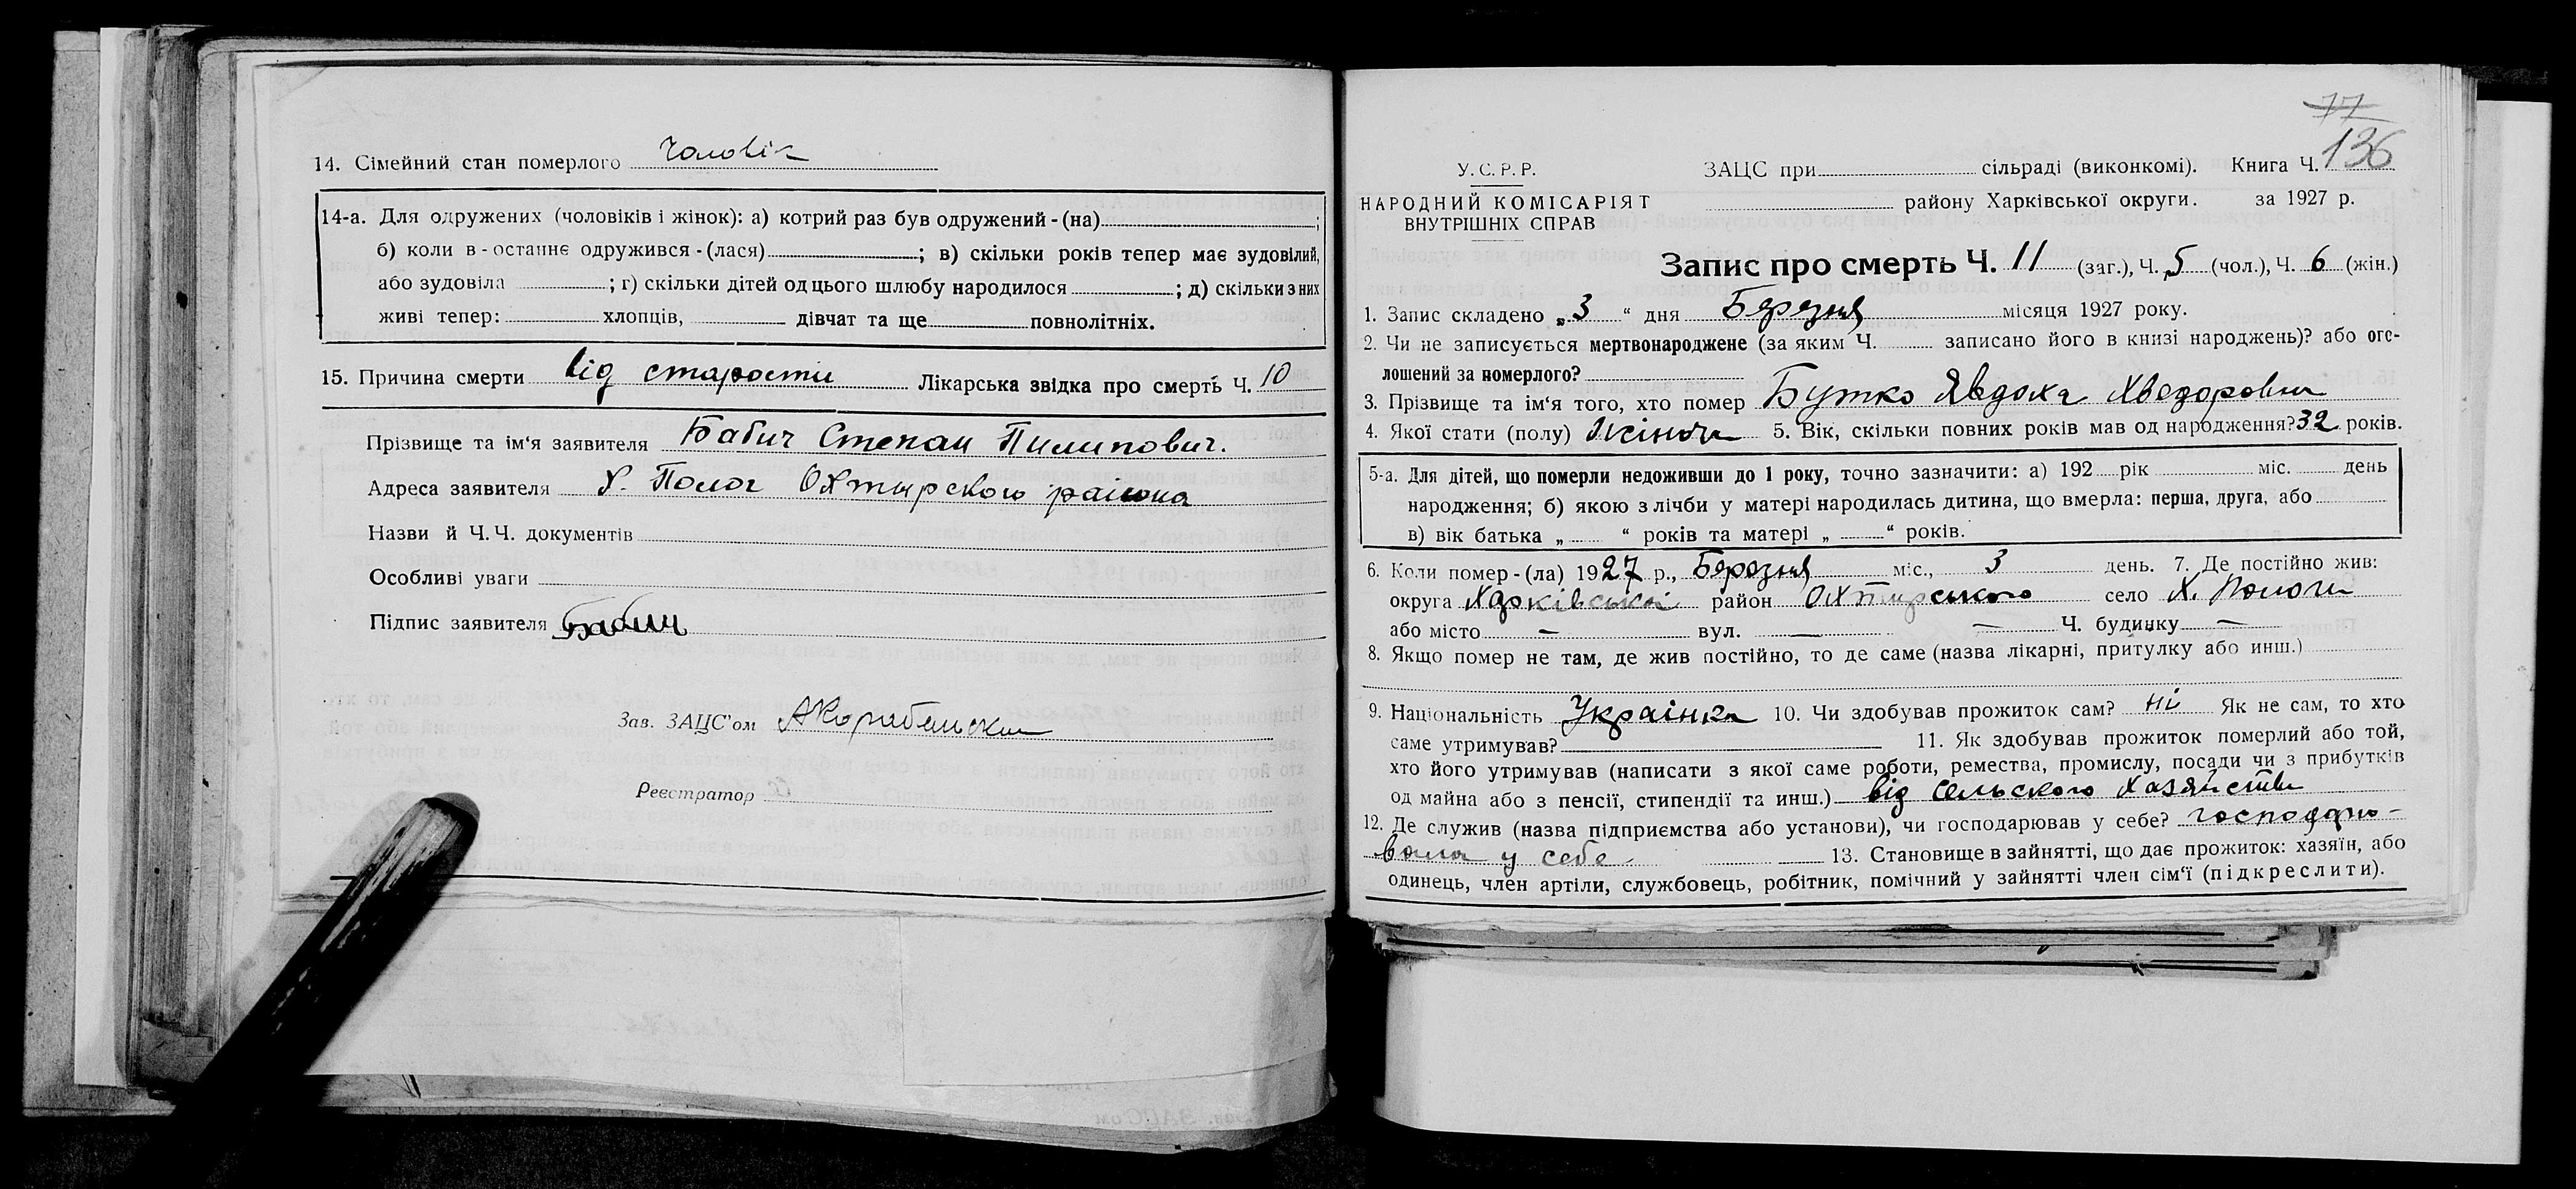 14. Сімейний стан померлого чоловік
14-а. Для одружених (чоловіків і жінок): а) котрий раз був одружений - (на) ;
б) коли в - останнє одружився - (лася) ; в) скільки років тепер має зудовілий,
або зудовіла ; г) скільки дітей од цього шлюбу народилося ; д) скільки з них
живі тепер: хлопців, дівчат та ще повнолітніх.
15. Причина смерти від старости Лікарська звідка про смерть Ч. 10
Прізвище та ім‘я заявителя Бабич Степан Пилипович.
Адреса заявителя Х. Полог Охтырского района
Назви й Ч. Ч. документів
Особливі уваги
Підпис заявителя Бабич
Зав. ЗАЦС‘ом
Реєстратор
77
136
У. С. Р. Р. ЗАЦС при сільраді (виконкомі). Книга Ч.
НАРОДНИЙ КОМІСАРІЯТ району Харківської округи. за 1927 р.
ВНУТРІШНІХ СПРАВ
Запис про смерть Ч. 11 (заг.), Ч. 5 (чол.), Ч. 6 (жін.)
1. Запис складено „ 3 “ дня Березня місяця 1927 року.
2. Чи не записується мертвонароджене (за яким Ч. записано його в книзі народжень)? або ого-
лошений за померлого?
3. Прізвище та ім‘я того, хто помер Бутко Явдоха Хведоровна
4. Якої статі (полу) Жіноча 5. Вік, скільки повних років мав од народження? 32 років.
5-а. Для дітей, що померли недоживши до 1 року, точно зазначити: а) 192 рік міс. день
народження; б) якою з лічби у матері народилась дитина, що вмерла: перша, друга, або
в) вік батька „ “ років та матері „ “ років.
6. Коли помер - (ла) 1927 р., Березня міс., 3 день. 7. Де постійно жив:
округа Харківської район Охтирського село Х. Пологи
або місто — вул. — — Ч. будинку —
8. Якщо помер не там, де жив постійно, то де саме (назва лікарні, притулку або инш.)
9. Національність Украінка 10. Чи здобував прожиток сам? ні Як не сам, то хто
саме утримував? 11. Як здобував прожиток померлий або той,
хто його утримував (написати з якої саме роботи, ремества, промислу, посади чи з прибутків
од майна або з пенсії, стипендії та инш.) від сельского хазяйства
12. Де служив (назва підприємства або установи), чи господарював у себе? господарю-
вала у себе 13. Становище в зайнятті, що дає прожиток: хазяїн, або
одинець, член артіли, службовець, робітник, помічний у зайнятті член сім‘ї (підкреслити).